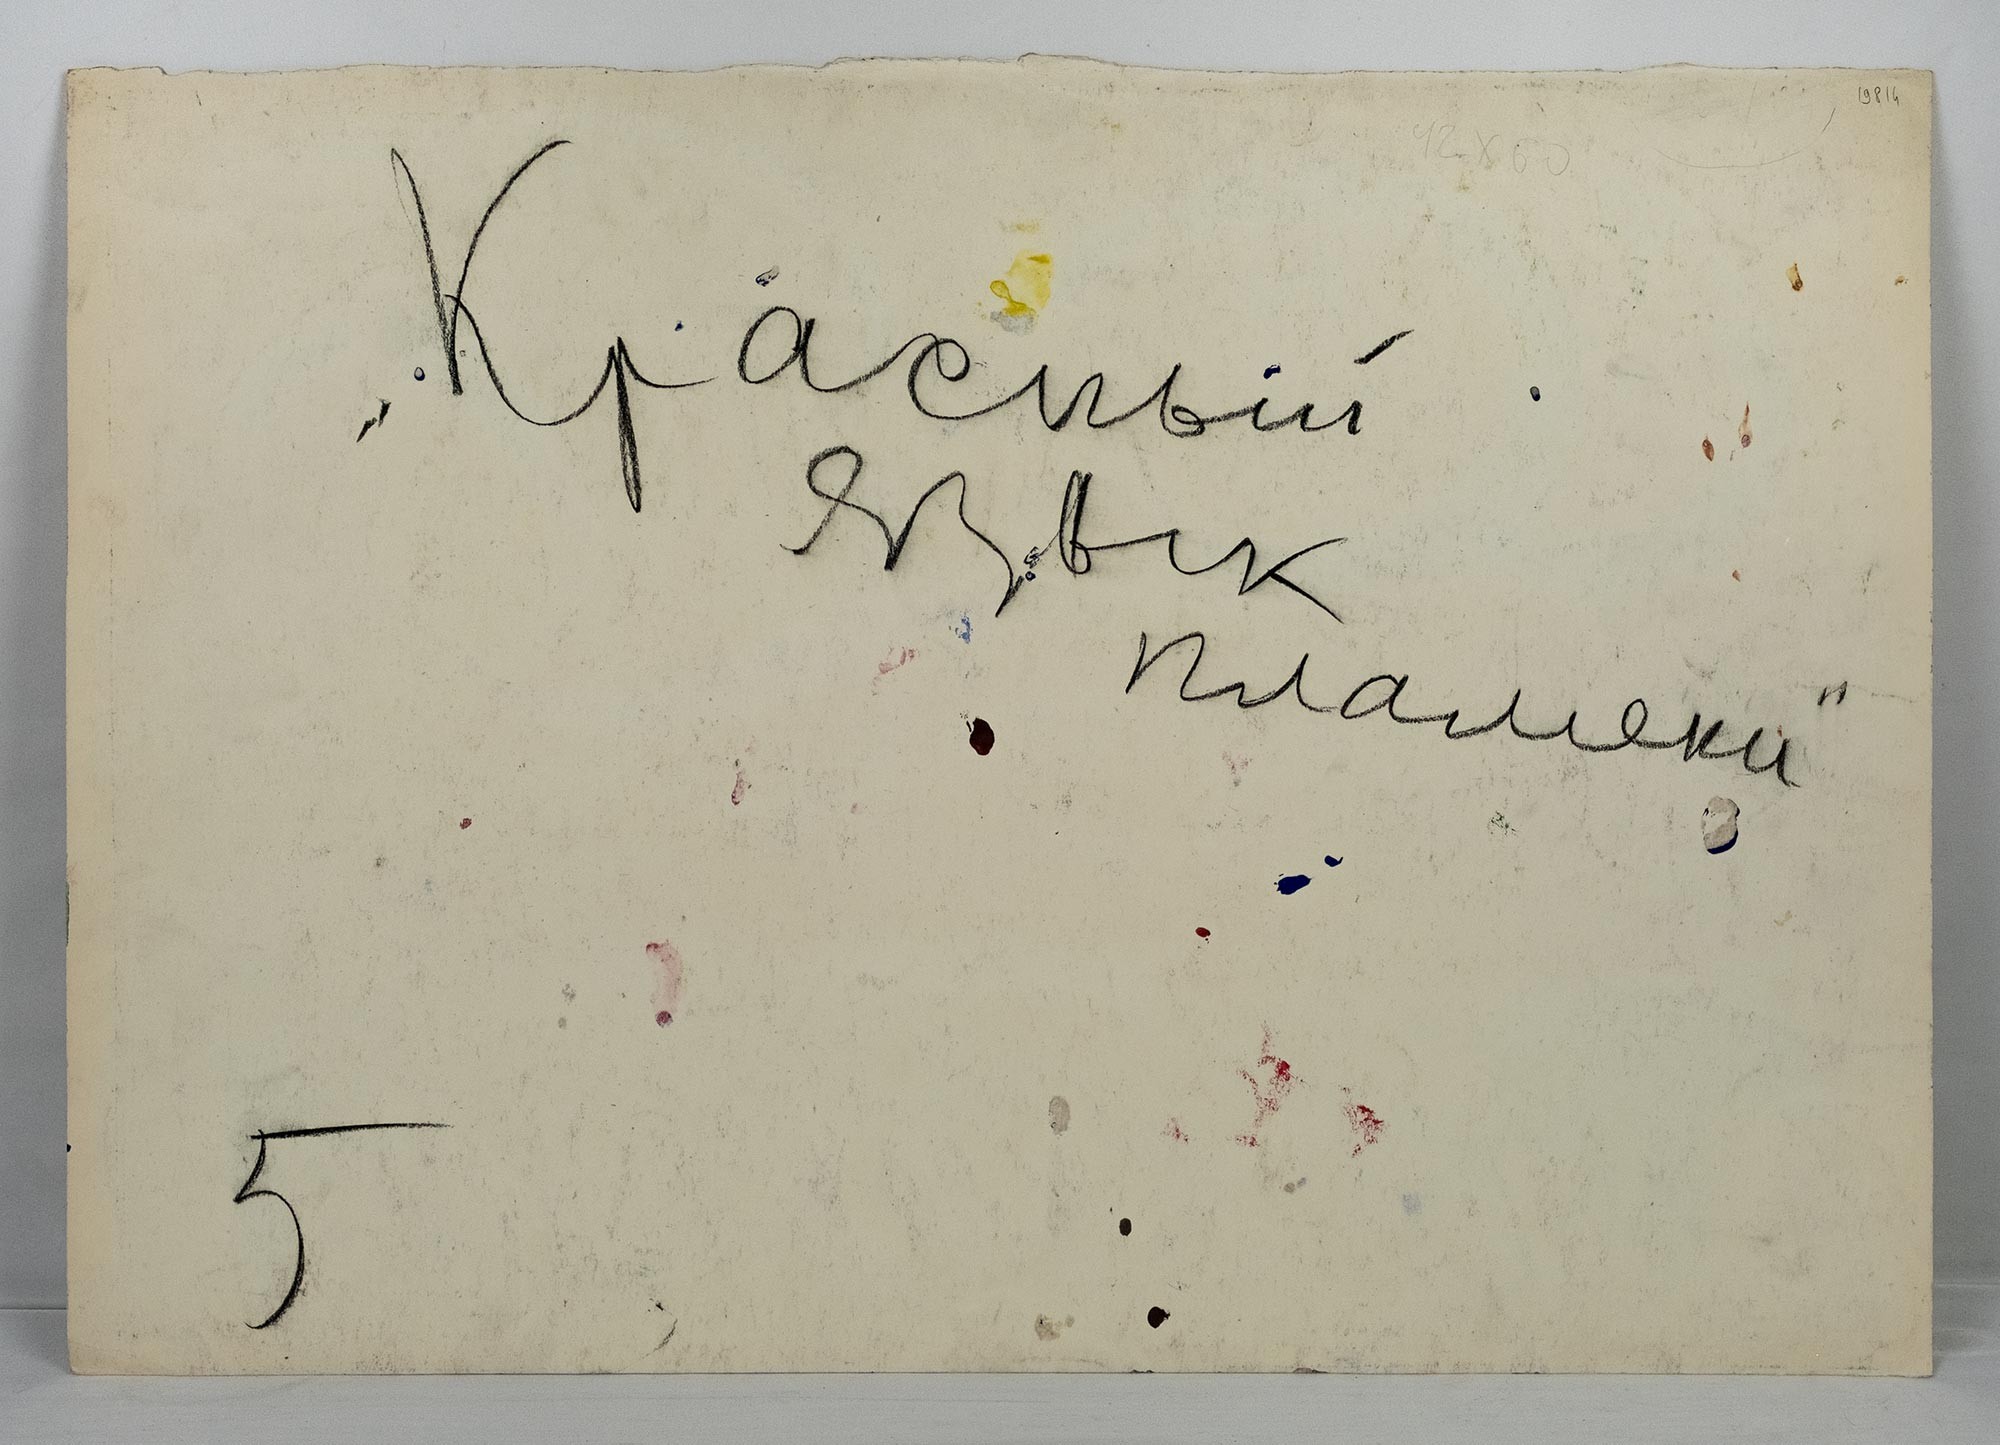 19814
42 х 60
„Красный
язык
пламени"
5